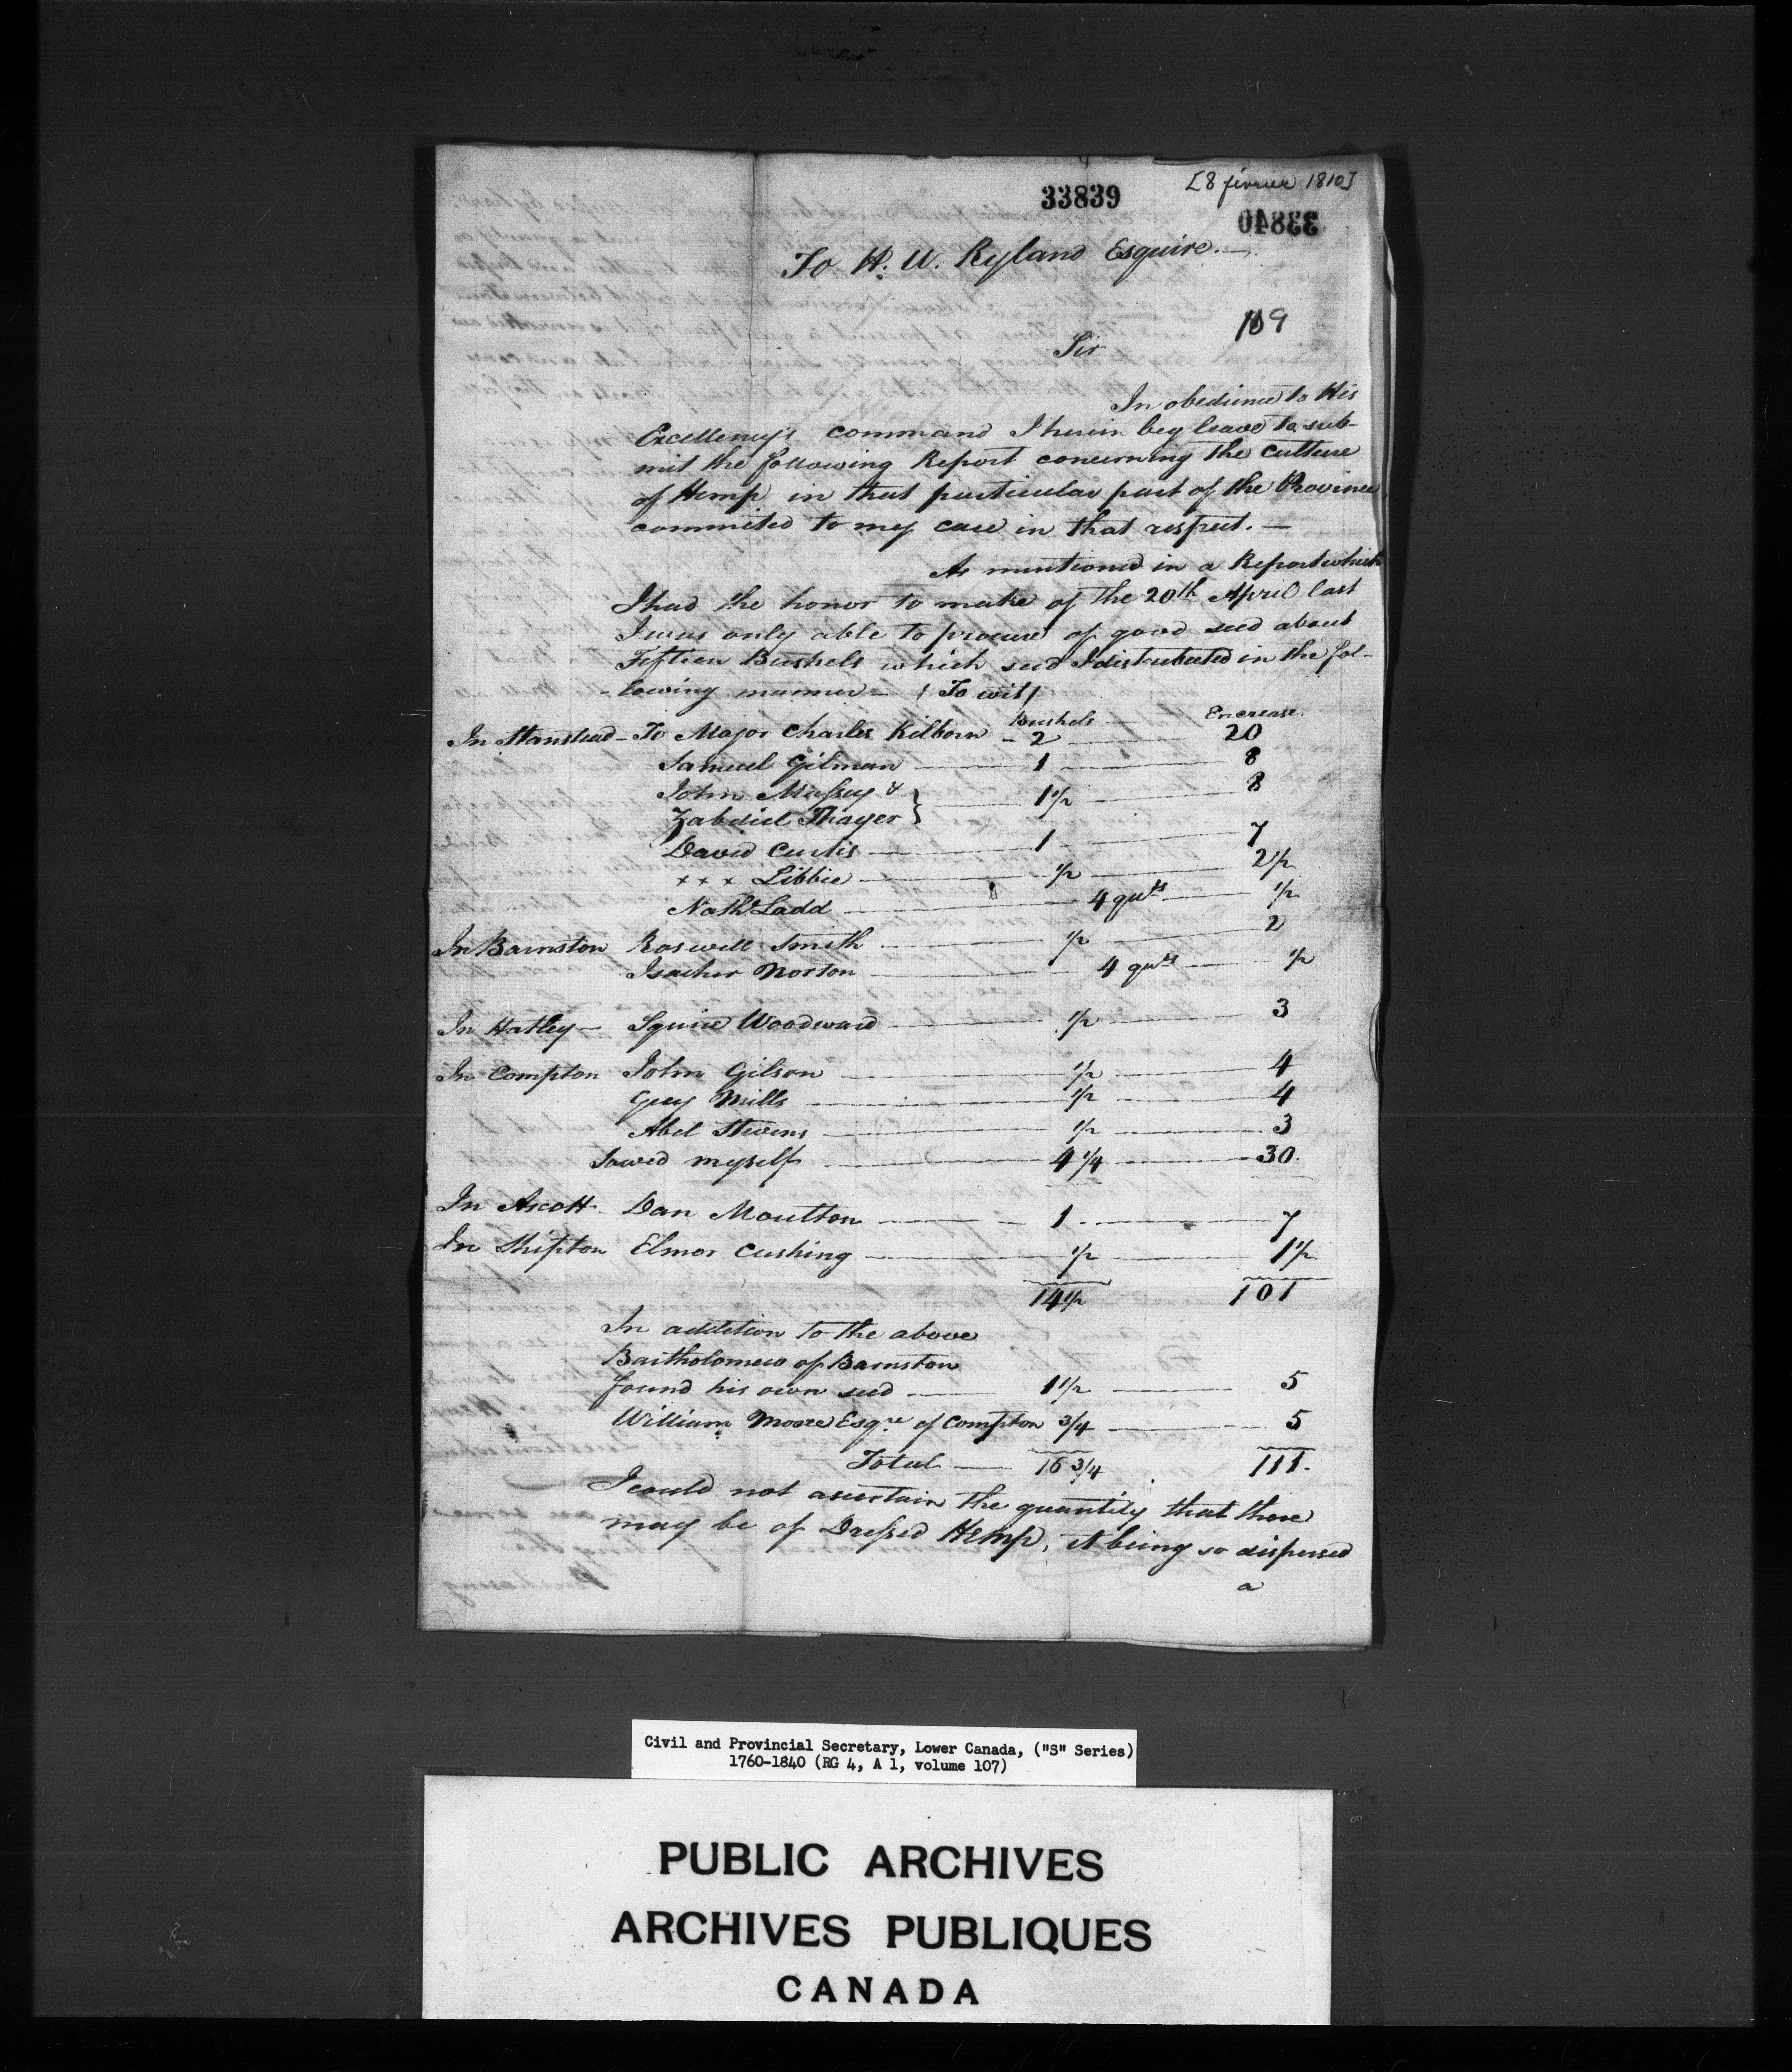 33839
[8 février 1810]
33840
To H. W. Ryland Esquire.—
109
Sir
In obedience to His
Excellency's command I herein beg leave to sub-
mit the following Report concerning the Culture
of Hemp in that particular part of the Province
commited to my care in that respect. —
As mentioned in a Report which
I had the honor to make of the 20th April last
I was only able to procure of good seed about
Fifteen Bushels which seed I distributed in the fol-
-lowing manner — (To wit)
Bushels — Encrease
In Stanstead — To Major Charles Kilborn — 2 — 20
Samuel Gilman — 1 — 8
John Massey & } 1½ — 8
Zabdiel Thayer }
David Curtis — 1 — 7
x x x Libbie — ½ — 2½
Nathl Ladd — 4 quts — ½
In Barnston Roswell Smith — ½ — 2
Isacher Norton — 4 quts — ½
In Hatley — Squire Woodward — ½ — 3
In Compton John Gilson — ½ — 4
Guy Mills — ½ — 4
Abel Stevens — ½ — 3
Sowed myself — 4¼ — 30
In Ascott Dan Moulton — 1 — 7
In Shipton Elmor Cushing — ½ — 1½
14½ 101
In addition to the above
Bartholomew of Barnston
found his own seed — 1½ — 5
William Moore Esqre of Compton ¾ — 5
Total — 16¾ 111.
I could not ascertain the quantity that there
may be of Dressed Hemp, it being so dispersed
a
Civil and Provincial Secretary, Lower Canada, ("S" Series)
1760-1840 (RG 4, A 1, volume 107)
PUBLIC ARCHIVES
ARCHIVES PUBLIQUES
CANADA